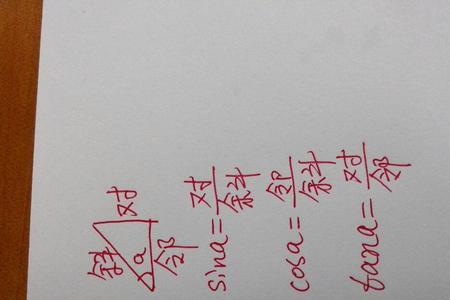 斜
对
a
邻
sina=对/斜
cosa=邻/斜
tana=对/邻